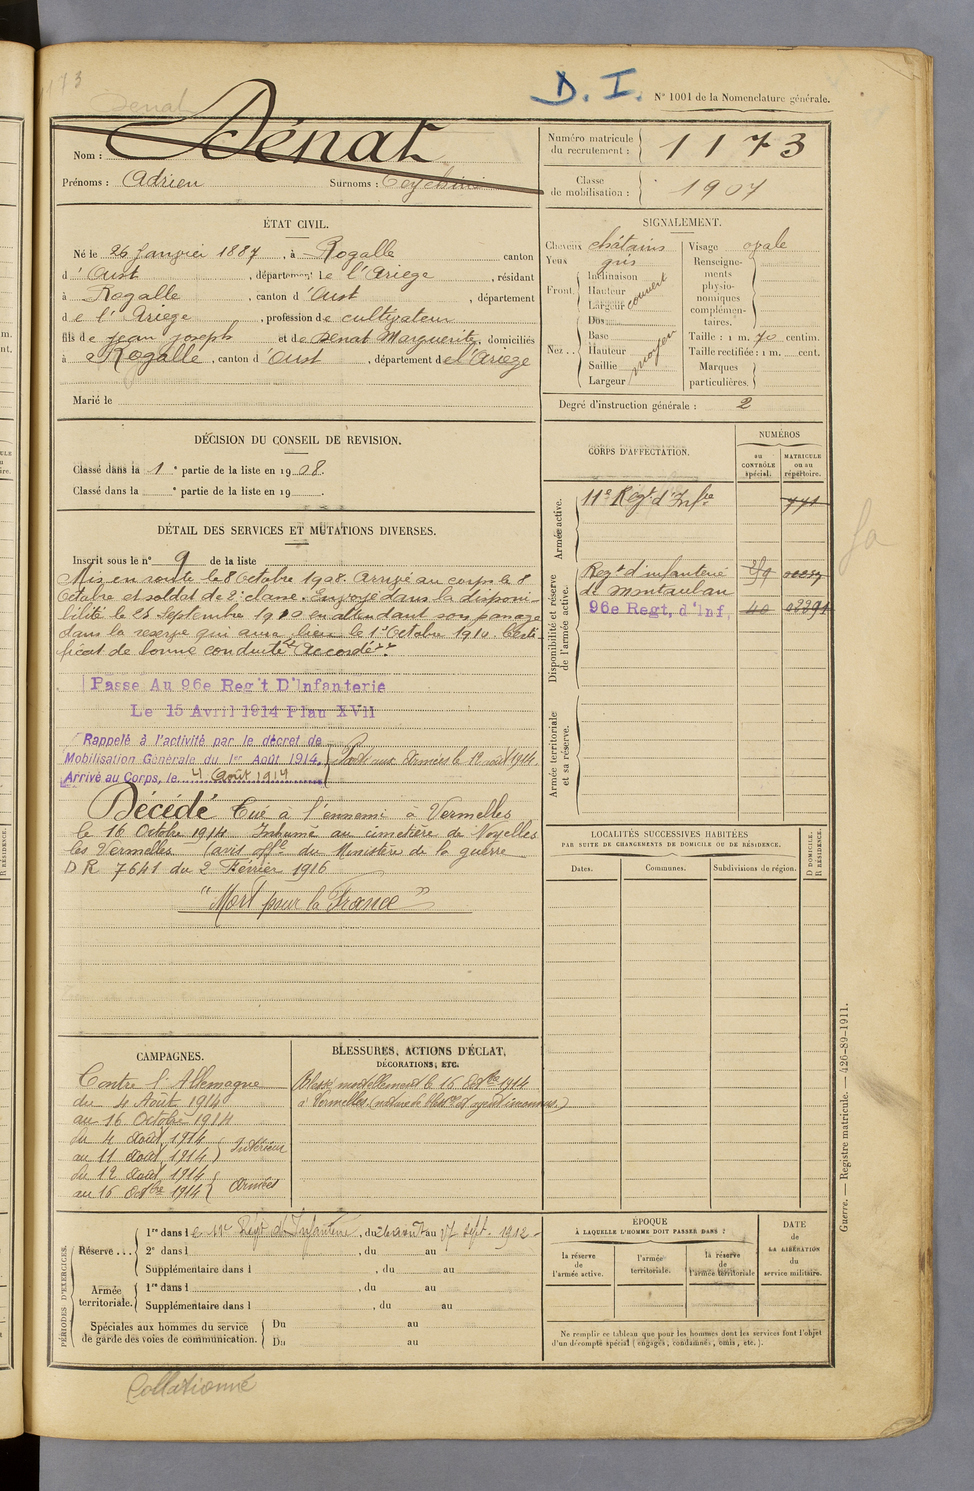 1173
Denat
D. I.
N° 1001 de la Nomenclature générale.
Nom : Dénat
Prénoms : Adrien Surnoms :
Numéro matricule du recrutement : 1173
Classe de mobilisation : 1907
ÉTAT CIVIL.
Né le 26 Janvier 1887, à Rogalle canton
d'Oust, département de l'Ariege, résidant
à Rogalle, canton d'Oust, département
de l'Ariege, profession de cultivateur
fils de Jean Joseph et de Denat Marguerite, domiciliés
à Rogalle, canton d'Oust, département de l'Ariege
Marié le
SIGNALEMENT.
Cheveux châtains
Yeux gris
Front Inclinaison Hauteur Largeur couvert
Nez .. Dos Base Hauteur Saillie Largeur moyen
Visage ovale
Renseignements physionomiques complémentaires.
Taille : 1 m. 70 centim.
Taille rectifiée : 1 m. cent.
Marques particulières.
Degré d'instruction générale : 2
DÉCISION DU CONSEIL DE RÉVISION.
Classé dans la 1e partie de la liste en 1908.
Classé dans la e partie de la liste en 19 .
CORPS D'AFFECTATION.
NUMÉROS
au CONTRÔLE spécial.
MATRICULE ou au répertoire.
Armée active.
11e Regt d'Infie 771
Disponibilité et réserve de l'armée active.
Regt d'infanterie
de Montauban
96e Regt, d'Inf 40
Armée territoriale et sa réserve.
DÉTAIL DES SERVICES ET MUTATIONS DIVERSES.
Inscrit sous le n° 9 de la liste
Mis en route le 8 Octobre 1908. Arrivé au corps le 8
Octobre et soldat de 2e classe. Envoyé dans la disponi-
bilité le 25 Septembre 1910 en attendant son passage
dans la reserve qui aura lieu le 1er Octobre 1910. Certi-
ficat de bonne conduite "Accordé".
Passé Au 96e Reg't D'Infanterie
Le 15 Avril 1914 Plan XVII
Rappelé à l'activité par le décret de
Mobilisation Générale du 1er Août 1914. Parti aux Armées le 12 août 1914.
Arrivé au Corps, le 4 Août 1914
Décédé Tué à l'ennemi à Vermelles
le 16 Octobre 1914 Inhumé au cimetière de Noyelles
les Vermelles (avis offel du Ministère de la guerre
D R 7641 du 2 Février 1916
"Mort pour la France"
LOCALITÉS SUCCESSIVES HABITÉES
PAR SUITE DE CHANGEMENTS DE DOMICILE OU DE RÉSIDENCE.
Dates. Communes. Subdivisions de région.
D DOMICILE. R RÉSIDENCE.
CAMPAGNES.
Contre l'Allemagne
du 4 Août 1914
au 16 Octobre 1914
du 4 Août 1914
au 11 Août 1914 Intérieur
du 12 Août 1914
au 16 Octbre 1914 Armées
BLESSURES, ACTIONS D'ÉCLAT,
DÉCORATIONS, ETC.
Blessé mortellement le 16 Octbre 1914
à Vermelles. (nature de blessre et agent inconnus.)
PÉRIODES D'EXERCICES.
Réserve ...
1re dans le 11e Regt d'Infanterie, du 26 août au 17 sept. 1912
2e dans l , du au
Supplémentaire dans l , du au
Armée territoriale.
1re dans l , du au
Supplémentaire dans l , du au
Spéciales aux hommes du service
de garde des voies de communication.
Du au
Du au
ÉPOQUE
À LAQUELLE L'HOMME DOIT PASSER DANS :
la réserve de l'armée active.
l'armée territoriale.
la réserve de l'armée territoriale
DATE de LA LIBÉRATION du service militaire.
Ne remplir ce tableau que pour les hommes dont les services font l'objet
d'un décompte spécial (engagés, condamnés, omis, etc.).
Guerre. — Registre matricule. — 426-89-1911.
Collationné